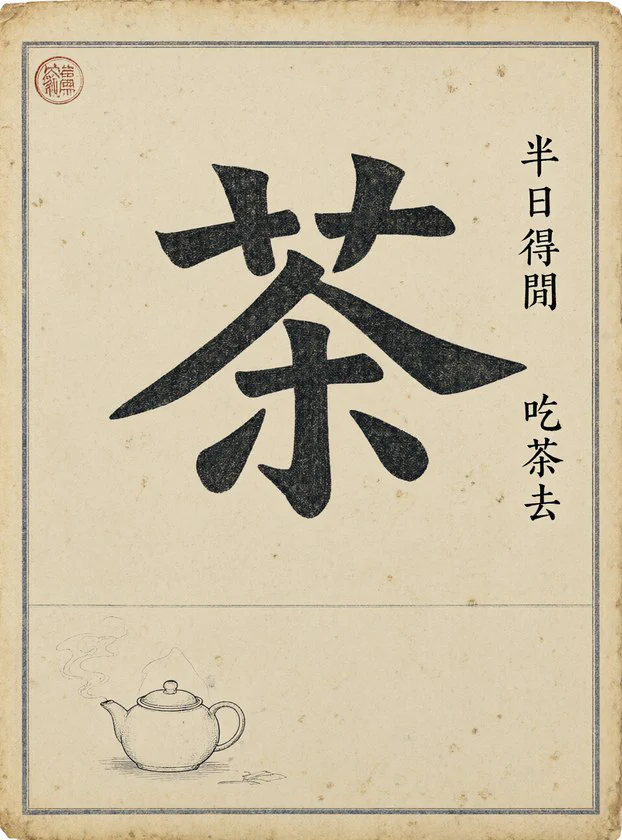 茶
半日得閒
吃茶去